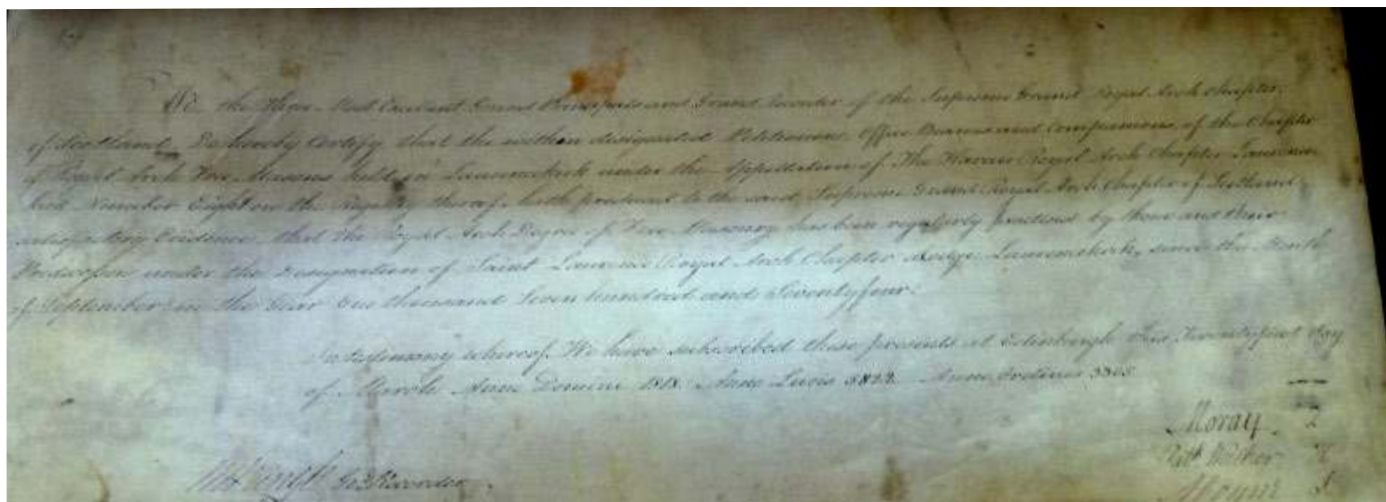 We the Three Most Excellent Grand Principals and Grand Recorder of the Supreme Grand Royal Arch Chapter
of Scotland, Do hereby Certify that the within designated Petitioners Office Bearers and Companions of the Chapter
of Royal Arch Free Masons held in Laurencekirk under the Appellation of The Royal Arch Chapter Laurence
kirk Number Eight on the Registry thereof, hath produced to the said Supreme Grand Royal Arch Chapter of Scotland
satisfactory Evidence, that the Royal Arch Degree of Free Masonry has been regularly practised by those and their
Predecessors under the Designation of Saint Laurence Royal Arch Chapter Lodge Laurencekirk, since the Month
of September in the Year One thousand Seven hundred and Seventyfour.
In testimony whereof, We have subscribed these presents at Edinburgh this Twentyfirst day
of March Anno Domini 1818. Anno Lucis 5822 Anno Ordinis
Moray Z
Gd Recorder.